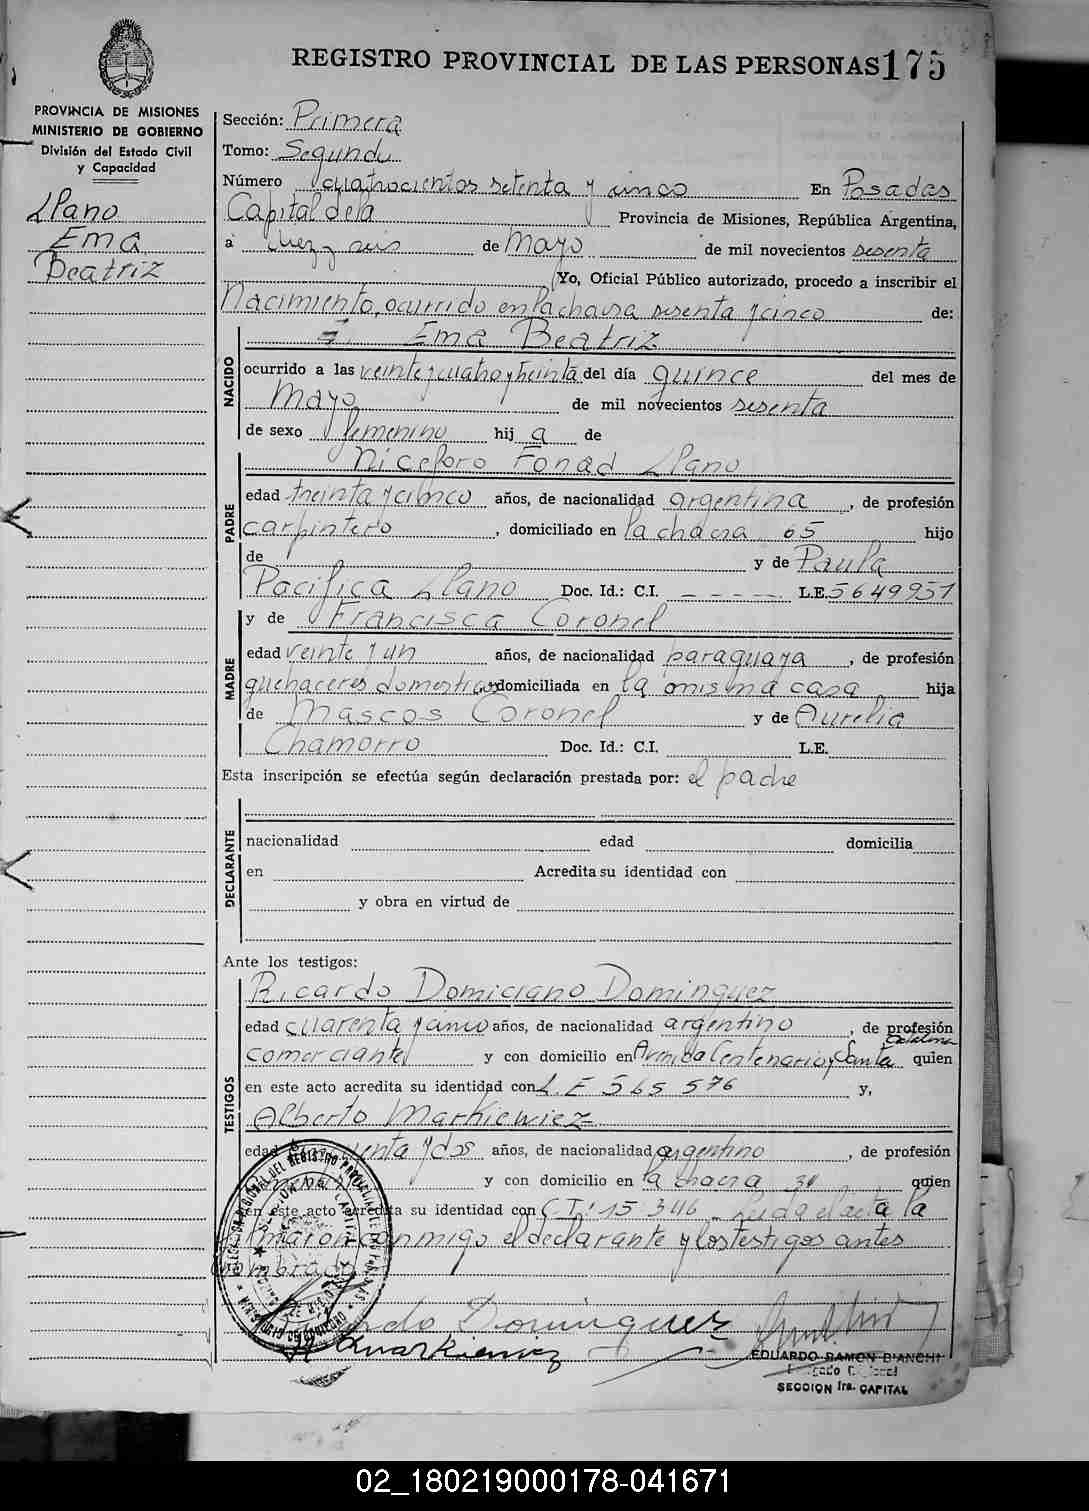 REGISTRO PROVINCIAL DE LAS PERSONAS 175
PROVINCIA DE MISIONES
MINISTERIO DE GOBIERNO
División del Estado Civil
y Capacidad
Llano
Ema
Beatriz
Sección: Primera
Tomo: Segundo
Número cuatrocientos setenta y cinco En Posadas
Capital de la Provincia de Misiones, República Argentina,
a diez y seis de Mayo de mil novecientos sesenta
Yo, Oficial Público autorizado, procedo a inscribir el
Nacimiento, ocurrido en la chacra sesenta y cinco de:
NACIDO
Ema Beatriz
ocurrido a las veinte y cuatro y treinta del día quince del mes de
Mayo de mil novecientos sesenta
de sexo femenino hij a de
PADRE
Niceforo Fonad Llano
edad treinta y cinco años, de nacionalidad argentina, de profesión
carpintero, domiciliado en la chacra 65 hijo
de y de Paula
Pacifica Llano Doc. Id.: C.I. - - - - - L.E. 5649951
MADRE
y de Francisca Coronel
edad veinte y un años, de nacionalidad paraguaya, de profesión
quehaceres domesticos domiciliada en la misma casa hija
de Mascos Coronel y de Aurelia
Chamorro Doc. Id.: C.I. L.E.
Esta inscripción se efectúa según declaración prestada por: el padre
DECLARANTE
nacionalidad edad domicilia
en Acredita su identidad con
y obra en virtud de
Ante los testigos:
TESTIGOS
Ricardo Domiciano Dominguez
edad cuarenta y cinco años, de nacionalidad argentino, de profesión
comerciante y con domicilio en Avenida Centenario y Santa Catalina quien
en este acto acredita su identidad con L.E 565 576 y,
Alberto Markiewiez
edad y dos años, de nacionalidad argentino, de profesión
y con domicilio en la chacra 31 quien
en este acto acredita su identidad con C.I: 15.346. Leida el acta la
firmaron conmigo el declarante y los testigos antes
nombrados
Dominguez
A Markiewiez
EDUARDO RAMON BIANCHI
SECCION 1ra. CAPITAL
02_180219000178-041671